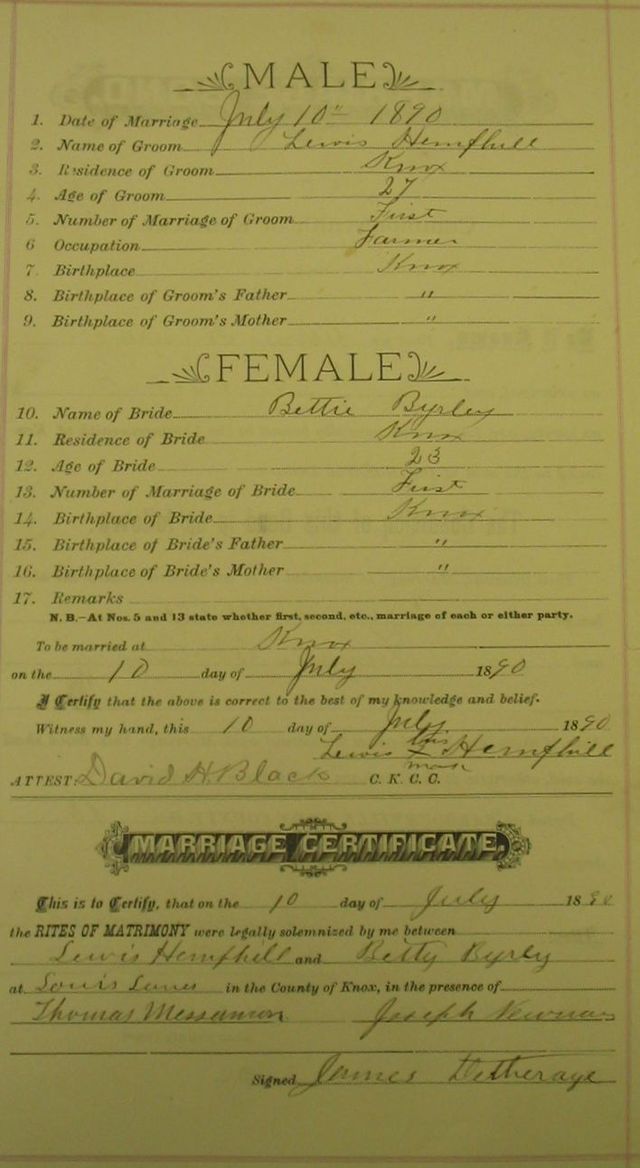 MALE
1. Date of Marriage July 10" 1890
2. Name of Groom Lewis Hemphill
3. Residence of Groom Knox
4. Age of Groom 27
5. Number of Marriage of Groom First
6 Occupation Farmer
7. Birthplace Knox
8. Birthplace of Groom's Father "
9. Birthplace of Groom's Mother "
FEMALE
10. Name of Bride Bettie Byrley
11. Residence of Bride Knox
12. Age of Bride 23
13. Number of Marriage of Bride First
14. Birthplace of Bride Knox
15. Birthplace of Bride's Father "
16. Birthplace of Bride's Mother "
17. Remarks
N. B.—At Nos. 5 and 13 state whether first, second, etc., marriage of each or either party.
To be married at Knox
on the 10 day of July 1890
I Certify that the above is correct to the best of my knowledge and belief.
Witness my hand, this 10 day of July 1890
Lewis his x mark Hemphill
ATTEST: David H. Black C. K. C. C.
MARRIAGE CERTIFICATE.
This is to Certify, that on the 10 day of July 1890
the RITES OF MATRIMONY were legally solemnized by me between
Lewis Hemphill and Betty Byrley
at Louis in the County of Knox, in the presence of
Thomas Messamon Joseph Newman
Signed James